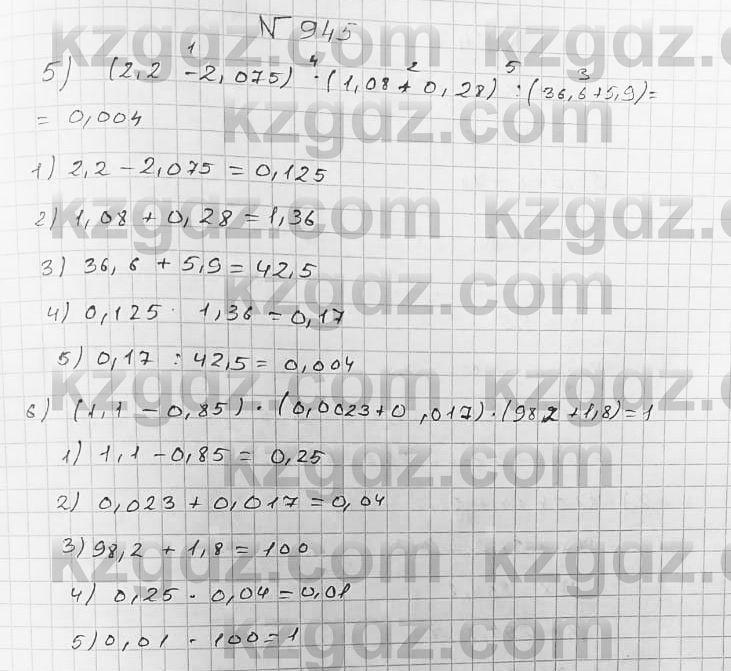 № 945
1 4 2 5 3
5) (2,2 - 2,075) · (1,08 + 0,28) : (36,6 + 5,9) =
= 0,004
1) 2,2 - 2,075 = 0,125
2) 1,08 + 0,28 = 1,36
3) 36,6 + 5,9 = 42,5
4) 0,125 · 1,36 = 0,17
5) 0,17 : 42,5 = 0,004
6) (1,1 - 0,85) · (0,0023 + 0,017) · (98,2 + 1,8) = 1
1) 1,1 - 0,85 = 0,25
2) 0,023 + 0,017 = 0,04
3) 98,2 + 1,8 = 100
4) 0,25 · 0,04 = 0,01
5) 0,01 · 100 = 1
kzgdz.com